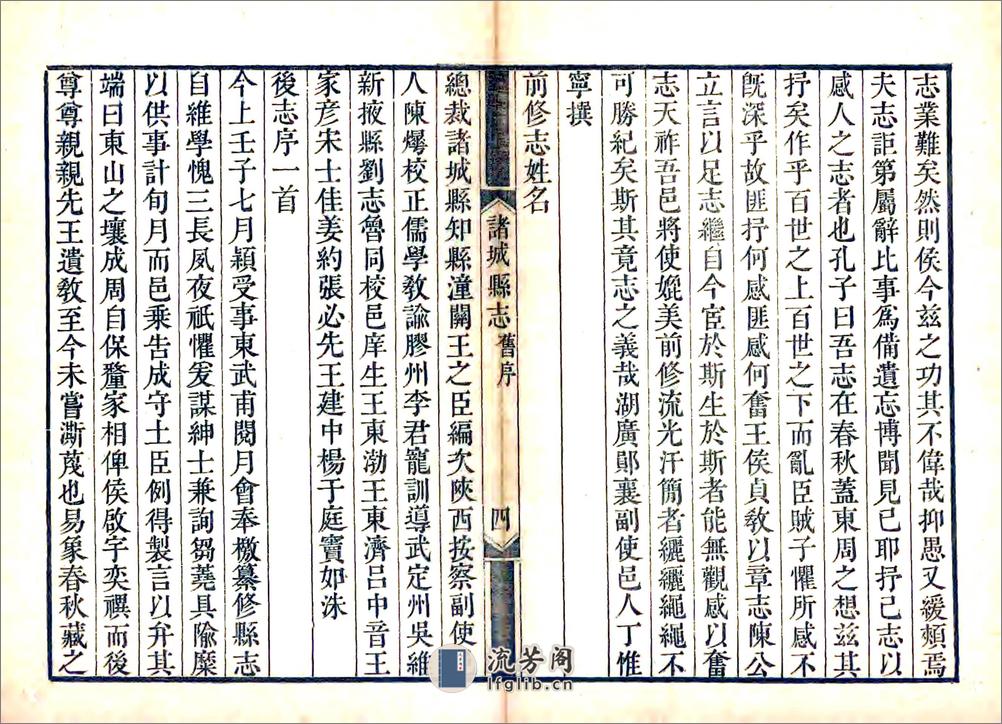 志業難矣然則侯今茲之功其不偉哉抑愚又緩頰焉
夫志詎第屬辭比事為備遺忘博聞見已耶抒己志以
感人之志者也孔子曰吾志在春秋蓋東周之想茲其
抒矣作乎百世之上百世之下而亂臣賊子懼所感不
旣深乎故匪抒何感匪感何奮王侯貞敎以章志陳公
立言以足志繼自今宦於斯生於斯者能無觀感以奮
志天祚吾邑將使媲美前修流光汗簡者纚纚繩繩不
可勝紀矣斯其竟志之義哉湖廣鄖襄副使邑人丁惟
寧撰
前修志姓名
諸城縣志 舊序 四
總裁諸城縣知縣潼關王之臣編次陝西按察副使
人陳燁校正儒學敎諭膠州李君寵訓導武定州吳維
新掖縣劉志魯同校邑庠生王東渤王東濟呂中音王
家彥宋士佳姜約張必先王建中楊于庭竇如洙
後志序一首
今上壬子七月穎受事東武甫閱月會奉檄纂修縣志
自維學愧三長夙夜祇懼爰謀紳士兼詢芻蕘具隃糜
以供事計旬月而邑乘告成守土臣例得製言以弁其
端曰東山之壤成周自保釐家相俾侯啟宇奕禩而後
尊尊親親先王遺敎至今未嘗澌蔑也易象春秋藏之
流芳阁
lfglib.cn